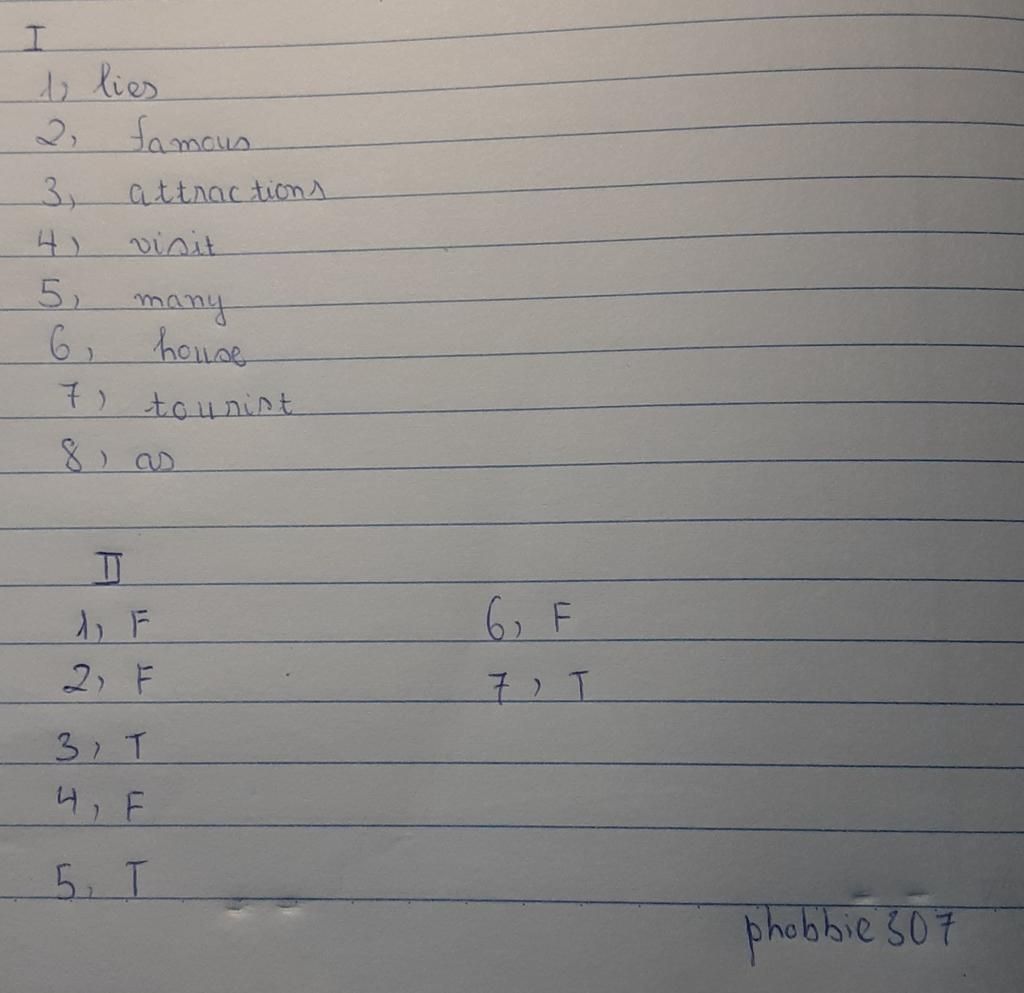 I
1, lies
2, famous
3, attractions
4, visit
5, many
6, house
7, tourist
8, as
II
1, F
2, F
3, T
4, F
5, T
6, F
7, T
phobbie307